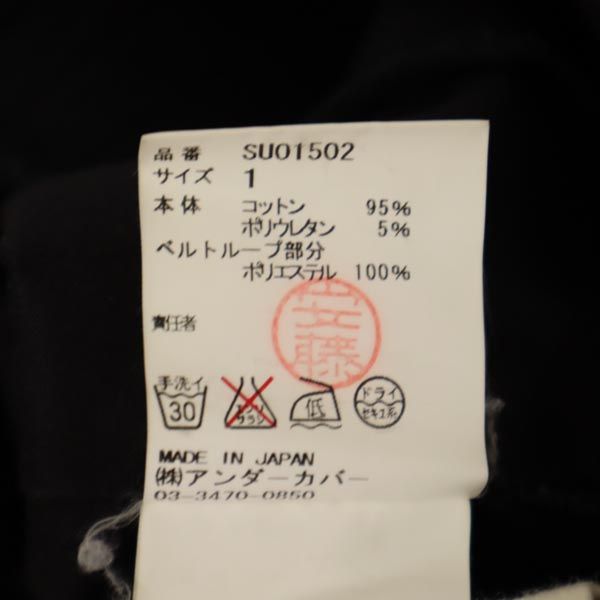 品番 SU01502
サイズ 1
本体 コットン 95%
ポリウレタン 5%
ベルトループ部分
ポリエステル 100%
責任者
安藤
手洗イ
30
エンソ
サラシ
低
ドライ
セキユ系
MADE IN JAPAN
(株)アンダーカバー
03-3470-0850